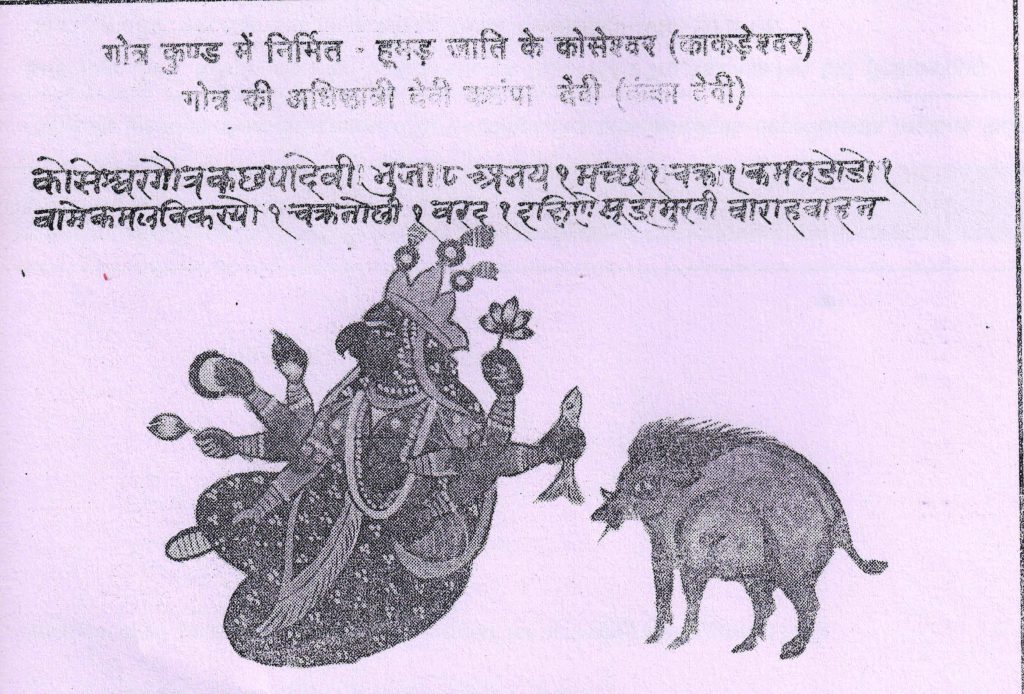 गोत्र कुण्ड में निर्मित - हूमड़ जाति के कोसेश्वर (काकडेश्वर)
गोत्र की अधिष्ठात्री देवी देवी देवी)
कोसेश्वरगौत्रकछपादेवी भुजा ८ अभय १ मच्छ १ चक्र १ कमलडोडो १
वामेकमलविकस्यो १ चक्रनोली १ वरद १ वाराहवाहन